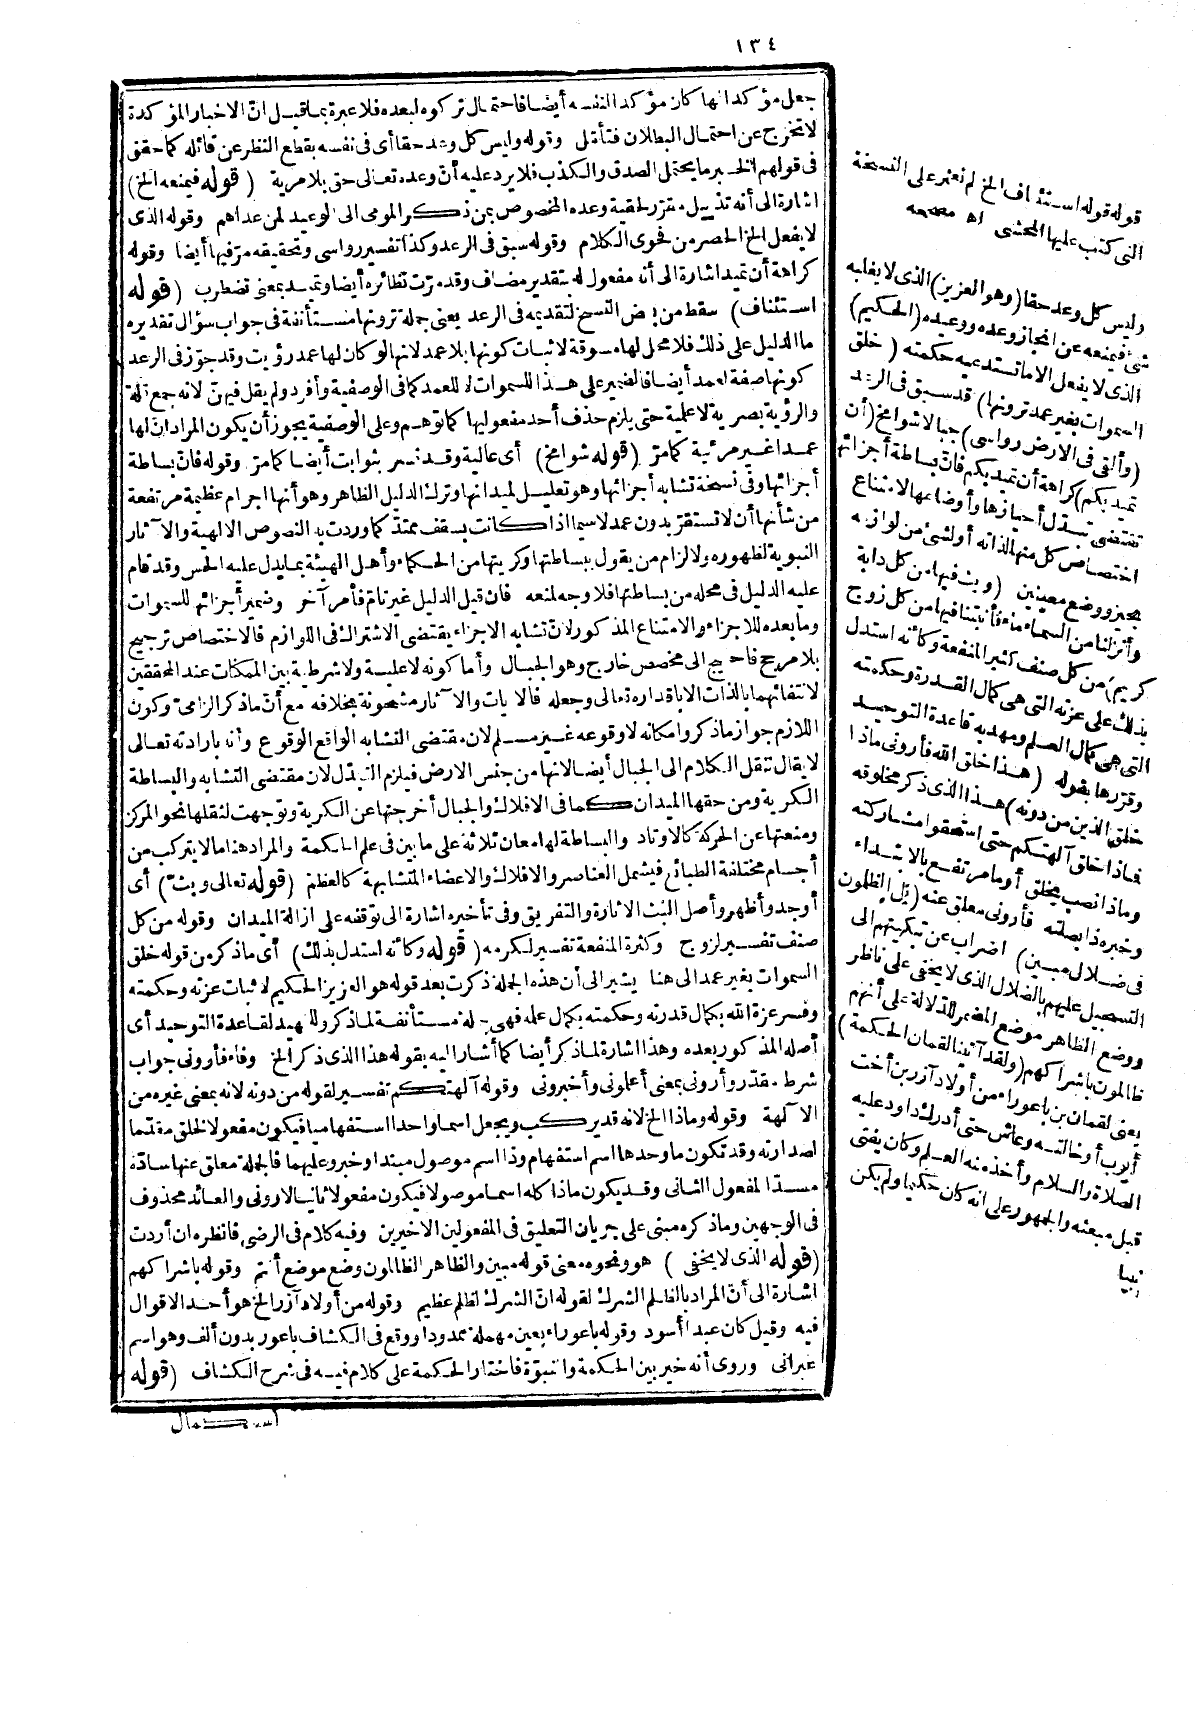 ١٣٤
جعل مؤكدا لها كان مؤكد النفسه أيضا فاحتمال تركوه لبعده فلا عبرة بما قيل انّ الاخبار المؤكدة
لا تخرج عن احتمال البطلان فتأمّل وقوله وليس كل وعد حقا أى فى نفسه بقطع النظر عن قائله كما حقق
فى قولهم الخبر ما يحتمل الصدق والكذب فلا يرد عليه أنّ وعده تعالى حق بلا مرية (قوله فيمنعه الخ)
اشارة الى أنه تذييل مقرّر لحقية وعده المخصوص بمن ذكر المومى الى الوعيد لمن عداهم وقوله الذى
لا يفعل الخ الحصر من فحوى الكلام وقوله سبق فى الرعد وكذا تفسير رواسى وتحقيقه مرّ فيها أيضا وقوله
كراهة أن تميد اشارة الى أنه مفعول له بتقدير مضاف وقد مرّت نظائره أيضا وتميد بمعنى تضطرب (قوله
استئناف) سقط من بعض النسخ لتقديمه فى الرعد يعنى جملة ترونها مستأنفة فى جواب سؤال تقديره
ما الدليل على ذلك فلا محل لها مسوقة لاثبات كونها بلا عمد لانها لو كان لها عمد رؤيت وقد جوّز فى الرعد
كونها صفة لعمد أيضا فالضمير على هذا للسموات لا للعمد كما فى الوصفية وأفرد ولم يقل فيهنّ لانه جمع قلة
والرؤية بصرية لا علمية حتى يلزم حذف أحد مفعوليها كما توهم وعلى الوصفية يجوز أن يكون المراد انّ لها
عمدا غير مرئية كما مرّ (قوله شوامخ) أى عالية وقد تفسر بثوابت أيضا كما مرّ وقوله فانّ بساطة
أجزائها وفى نسخة تشابه أجزائها وهو تعليل لميدانها وترك الدليل الظاهر وهو أنها اجرام عظيمة مرتفعة
من شأنها أن لا تستقرّ بدون عمد لا سيما اذا كانت بسقف ممتدّ كما وردت به النصوص الالهية والآثار
النبوية لظهوره ولالزام من يقول ببساطتها وكريتها من الحكماء وأهل الهيئة بما يدل عليه الحس وقد قام
عليه الدليل فى محله من بساطتها فلا وجه لمنعه فان قيل الدليل غير تامّ فأمر آخر وضمير أجزائها للسموات
وما بعده للاجزاء والامتناع المذكور لانّ تشابه الاجزاء يقتضى الاشتراك فى اللوازم فالاختصاص ترجيح
بلا مرجح فاحتيج الى مخصص خارج وهو الجبال وأما كونه لا علية ولا شرطية بين الممكنات عند المحققين
لانتفائهما بالذات الا باقداره تعالى وجعله فالآيات والآثار مشحونة بخلافه مع أنّ ما ذكر الزامىّ وكون
اللازم جواز ما ذكر وامكانه لا وقوعه غير مسلم لان مقتضى التشابه الواقع الوقوع وأنه بارادته تعالى
لا يقال تنقل الكلام الى الجبال أيضا لانها من جنس الارض فيلزم التبدّل لان مقتضى التشابه والبساطة
الكرية ومن حقها الميدان كما فى الافلاك والجبال أخرجتها عن الكرية وتوجهت لثقلها نحو المركز
ومنعتها عن الحركة كالاوتاد والبساطة لها معان ثلاثة على ما بين فى علم الحكمة والمراد هنا ما لا يتركب من
أجسام مختلفة الطبائع فيشمل العناصر والافلاك والاعضاء المتشابهة كالعظم (قوله تعالى وبث) أى
أوجد وأظهر وأصل البث الاثارة والتفريق وفى تأخيره اشارة الى توقفه على ازالة الميدان وقوله من كل
صنف تفسير لزوج وكثرة المنفعة تفسير لكرمه (قوله وكأنه استدل بذلك) أى ما ذكره من قوله خلق
السموات بغير عمد الى هنا يشير الى أن هذه الجملة ذكرت بعد قوله هو العزيز الحكيم لاثبات عزته وحكمته
وفسر عزة الله بكمال قدرته وحكمته بكمال علمه فهى جملة مستأنفة لما ذكر وللتمهيد لقاعدة التوحيد أى
أصله المذكور بعده وهذا اشارة لما ذكر أيضا كما أشار اليه بقوله هذا الذى ذكر الخ وفاء فأرونى جواب
شرط مقدّر وأرونى بمعنى أعلمونى وأخبرونى وقوله آلهتكم تفسير لقوله من دونه لانه بمعنى غيره من
الآلهة وقوله وماذا الخ لانه قد يركب ويجعل اسما واحدا استفهاميا فيكون مفعولا لخلق مقدّما
لصدارته وقد تكون ما وحدها اسم استفهام وذا اسم موصول مبتدا وخبر وعليهما فالجملة معلق عنها سادّة
مسدّ المفعول الثانى وقد يكون ماذا كله اسما موصولا فيكون مفعولا ثانيا لارونى والعائد محذوف
فى الوجهين وما ذكره مبنى على جريان التعليق فى المفعولين الاخيرين وفيه كلام فى الرضى فانظره ان أردت
(قوله الذى لا يخفى) هو ونحوه معنى قوله مبين والظاهر الظالمون وضع موضع أنتم وقوله باشراكهم
اشارة الى أنّ المراد بالظلم الشرك لقوله انّ الشرك لظلم عظيم وقوله من أولاد آزر الخ هو أحد الاقوال
فيه وقيل كان عبدا أسود وقوله باعوراء بعين مهملة ممدودا ووقع فى الكشاف باعور بدون ألف وهو اسم
عبرانى وروى أنه خير بين الحكمة والنبوّة فاختار الحكمة على كلام فيه فى شرح الكشاف (قوله
استكمال
قوله قوله استئناف الخ لم نعثر على النسخة
التى كتب عليها المحشى اه مصححه
وليس كل وعد حقا (وهو العزيز) الذى لا يغلبه
شئ فيمنعه عن انجاز وعده ووعيده (الحكيم)
الذى لا يفعل الا ما تستدعيه حكمته (خلق
السموات بغير عمد ترونها) قد سبق فى الرعد
(وألقى فى الارض رواسى) جبالا شوامخ (أن
تميد بكم) كراهة أن تميد بكم فانّ بساطة أجزائها
تقتضى تبدّل أحيازها وأوضاعها لامتناع
اختصاص كل منها لذاته أو لشئ من لوازمه
بحيز ووضع معينين (وبث فيها من كل دابة
وأنزلنا من السماء ماء فأنبتنا فيها من كل زوج
كريم) من كل صنف كثير المنفعة وكأنه استدل
بذلك على عزته التى هى كمال القدرة وحكمته
التى هى كمال العلم ومهد به قاعدة التوحيد
وقرّرها بقوله (هذا خلق الله فأرونى ماذا
خلق الذين من دونه) هذا الذى ذكر مخلوقه
فماذا خلق آلهتكم حتى استحقوا مشاركته
وماذا نصب بخلق أو ما مرتفع بالابتداء
وخبره ذا بصلته فأرونى معلق عنه (بل الظالمون
فى ضلال مبين) اضراب عن تبكيتهم الى
التسجيل عليهم بالضلال الذى لا يخفى على ناظر
ووضع الظاهر موضع المضمر للدلالة على أنهم
ظالمون باشراكهم (ولقد آتينا لقمان الحكمة)
يعنى لقمان بن باعوراء من أولاد آزر بن أخت
أيوب أو خالته وعاش حتى أدرك داود عليه
الصلاة والسلام وأخذ منه العلم وكان يفتى
قبل مبعثه والجمهور على انه كان حكيما ولم يكن
نبيا